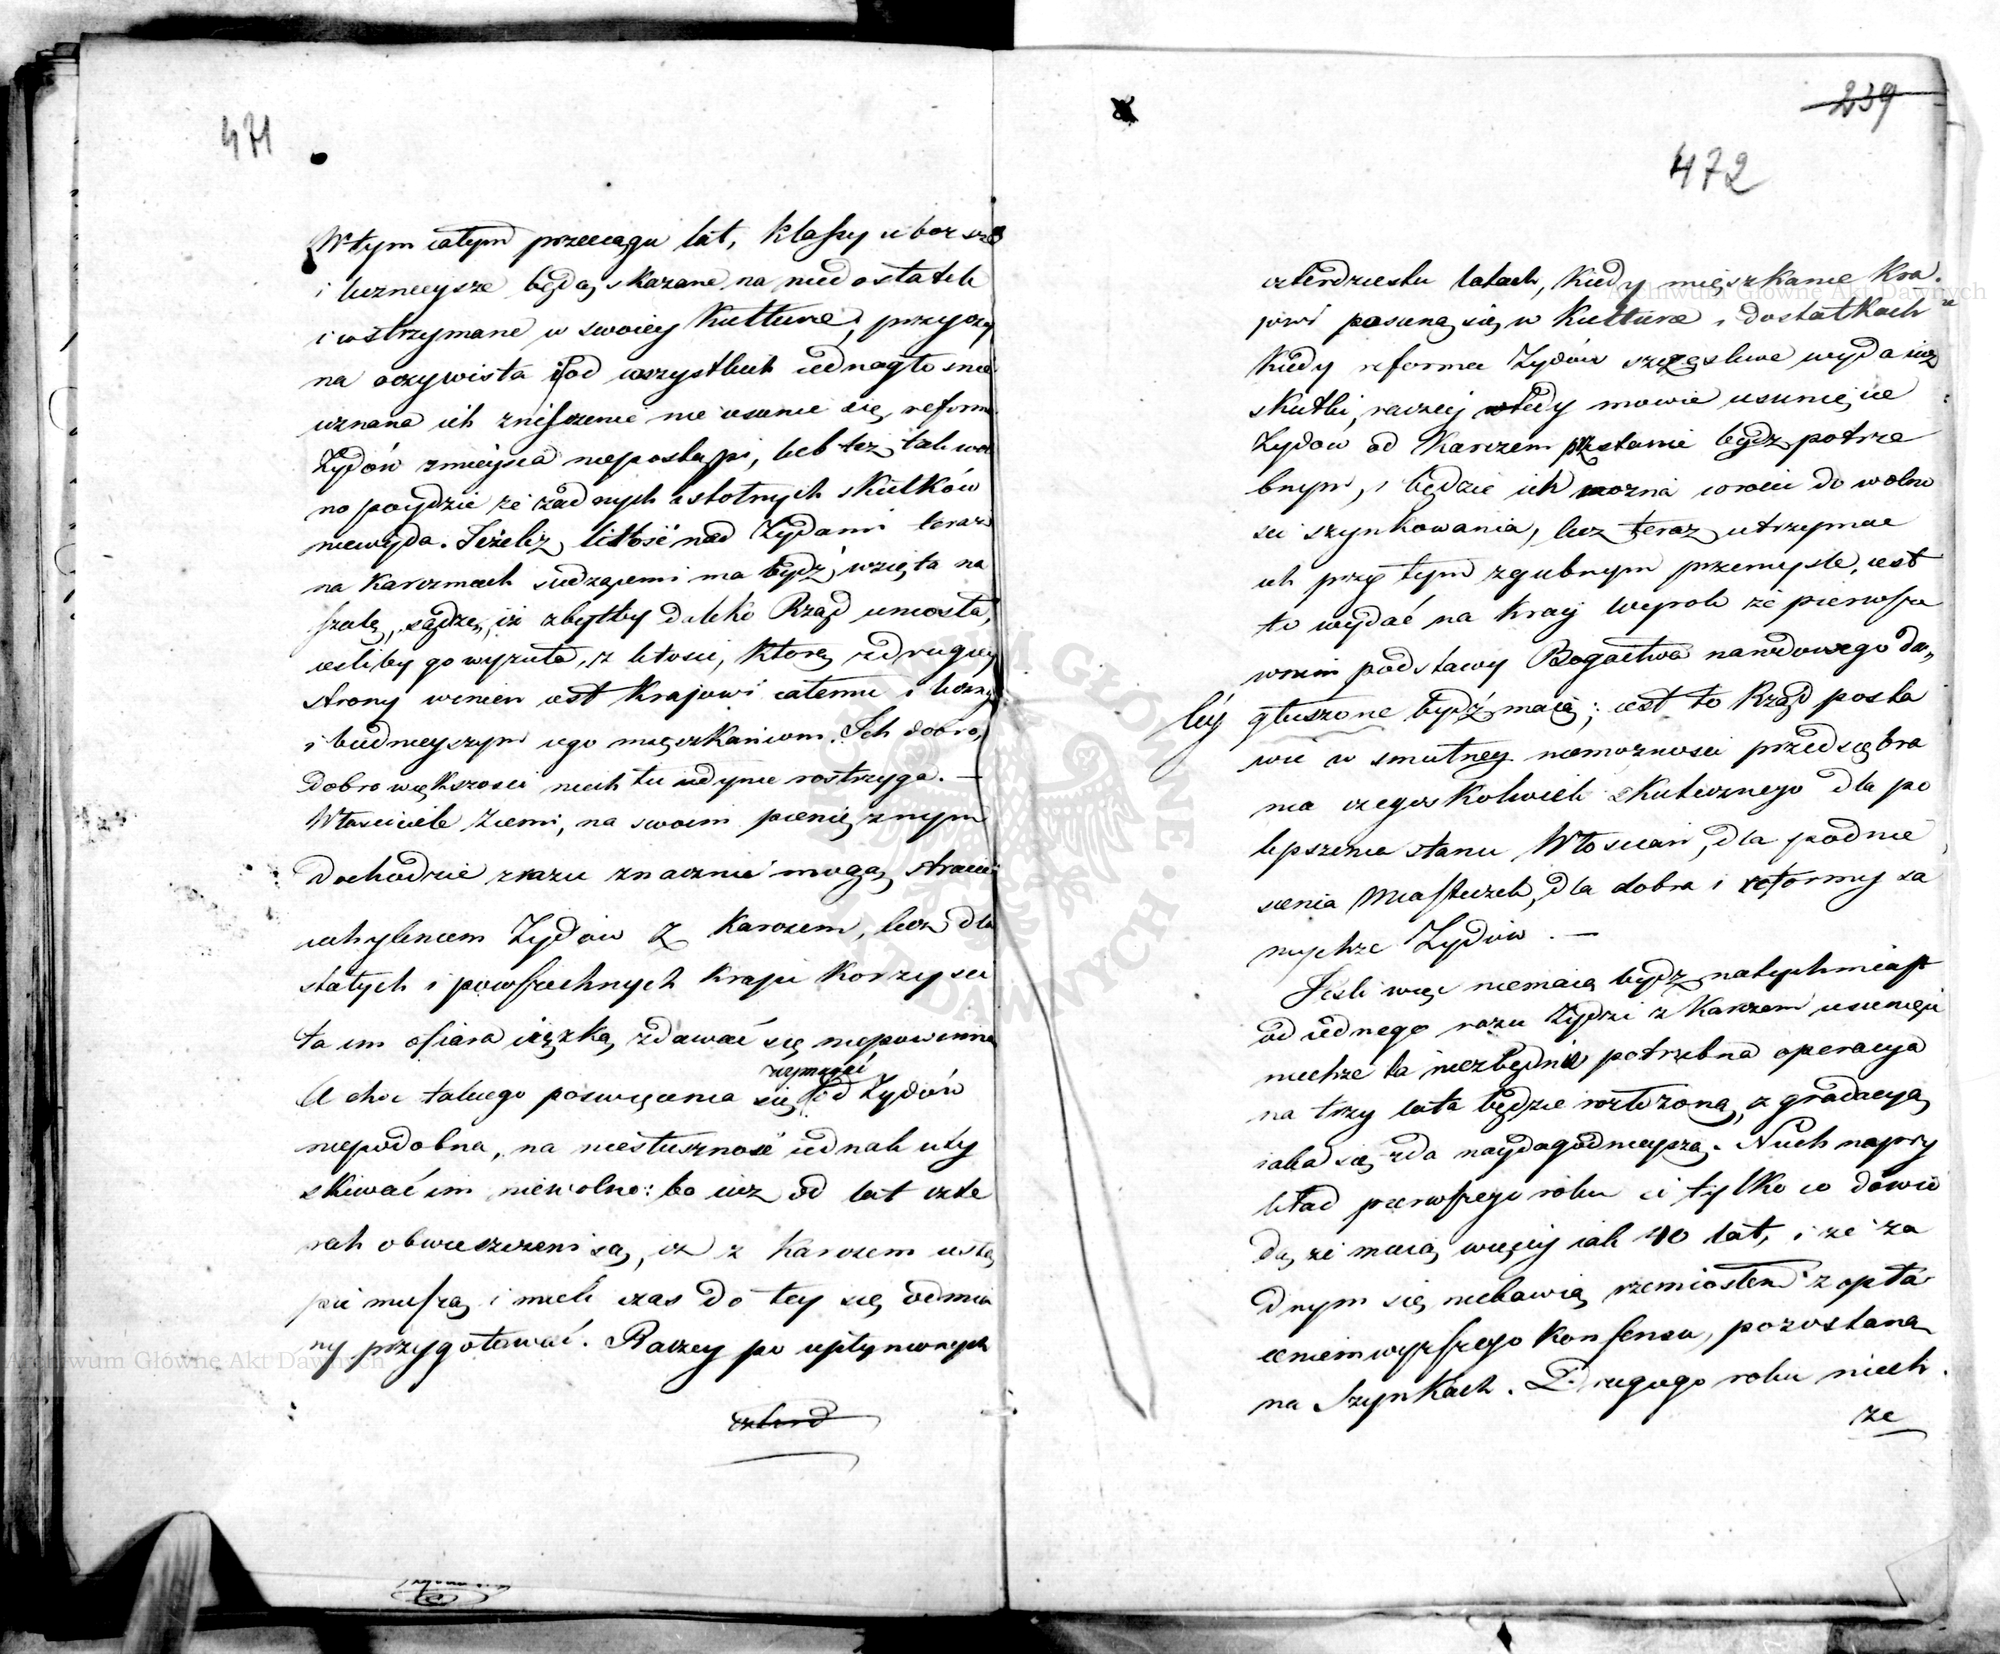 471
W tym całym przeciągu lat, klassy uboższe
i licznieysze będą skazane na niedostatek
i wstrzymane w swoiey Kulturze, przyczy
na oczywista i od wszystkich iednogłosnie
uznana ich zniszczenie nie usunie się, reforma
Żydów zmieysca niepostąpi, lub też tak wol
no poydzie że żadnych istotnych skutków
niewyda. Jeżeliż litość nad Żydami teraz
na Karczmach siedzącemi ma bydź wzięta na
szalę, sądzę, iż zbytby daleko Rząd uniosła,
iesliby go wyzuła z litosci, którą z drugiey
strony winien iest Krajowi całemu i liczny
i biednieyszym iego mięszkańcom. Ich dobro,
dobro większosci niech tu iedynie rostrzyga. —
Własciciele Ziemi, na swoim pienięznym
dochodzie zrazu znacznie mogą stracić
uchyleniem Żydów z Karczem, lecz dla
stałych i powszechnych Kraju Korzysci
ta im ofiara ciężką zdawać się niepowinna
A choć takiego poswięcenia się od Żydów
wymagać
niepodobna, na niesłuszność iednak uży
skiwać im niewolno: bo iuż od lat czte
rech obwieszczeni są, iż z Karczem ustą
pić muszą i mieli czas do tey się odmia
ny przygotować. Raczey po upłynionych
czterd
239
472
czterdziestu latach, Kiedy mięszkanie Kra
jowi posuną się w Kulturze i dostatkach
Kiedy reforma Żydów szczęsliwe wyda iuż
skutki, raczej wtedy mowie usunięcie
Żydow od Karczem przestanie bydz potrze
bnym, i będzie ich można wrócić do wolno
sci szynkowania, lecz teraz utrzymać
ich przy tym zgubnym przemysle, iest
to wydać na Kray wyrok że pierwsze
wnim podstawy Bogactwa narodowego da„
léy głuszone bydź maią; iest to Rząd posta
wić w smutney niemożnosci przedsiębra
nia czegoś Kolwiek skutecznego dla po
lepszenia stanu Włoscian, dla podnie
sienia Miasteczek, dla dobra i reformy sa
mychże Żydów. —
Jesli więc niemaią bydz natychmiast
od iednego razu Żydzi z Karczem usunięci
niechże ta niezbędnie potrzebna operacya
na trzy lata będzie rozłożoną, z gradacyą
iaka się zda naydogodnieyszą. Niech naprzy
kład pierwszego roku ci tylko co dowio
dą że maią więcej iak 40 lat, i że ża
dnym się niebawią rzemiosłem z opła
ceniem wyższego Konsensu, pozostaną
na Szynkach. Drugiego roku niech
że
Archiwum Główne Akt Dawnych
Archiwum Główne Akt Dawnych